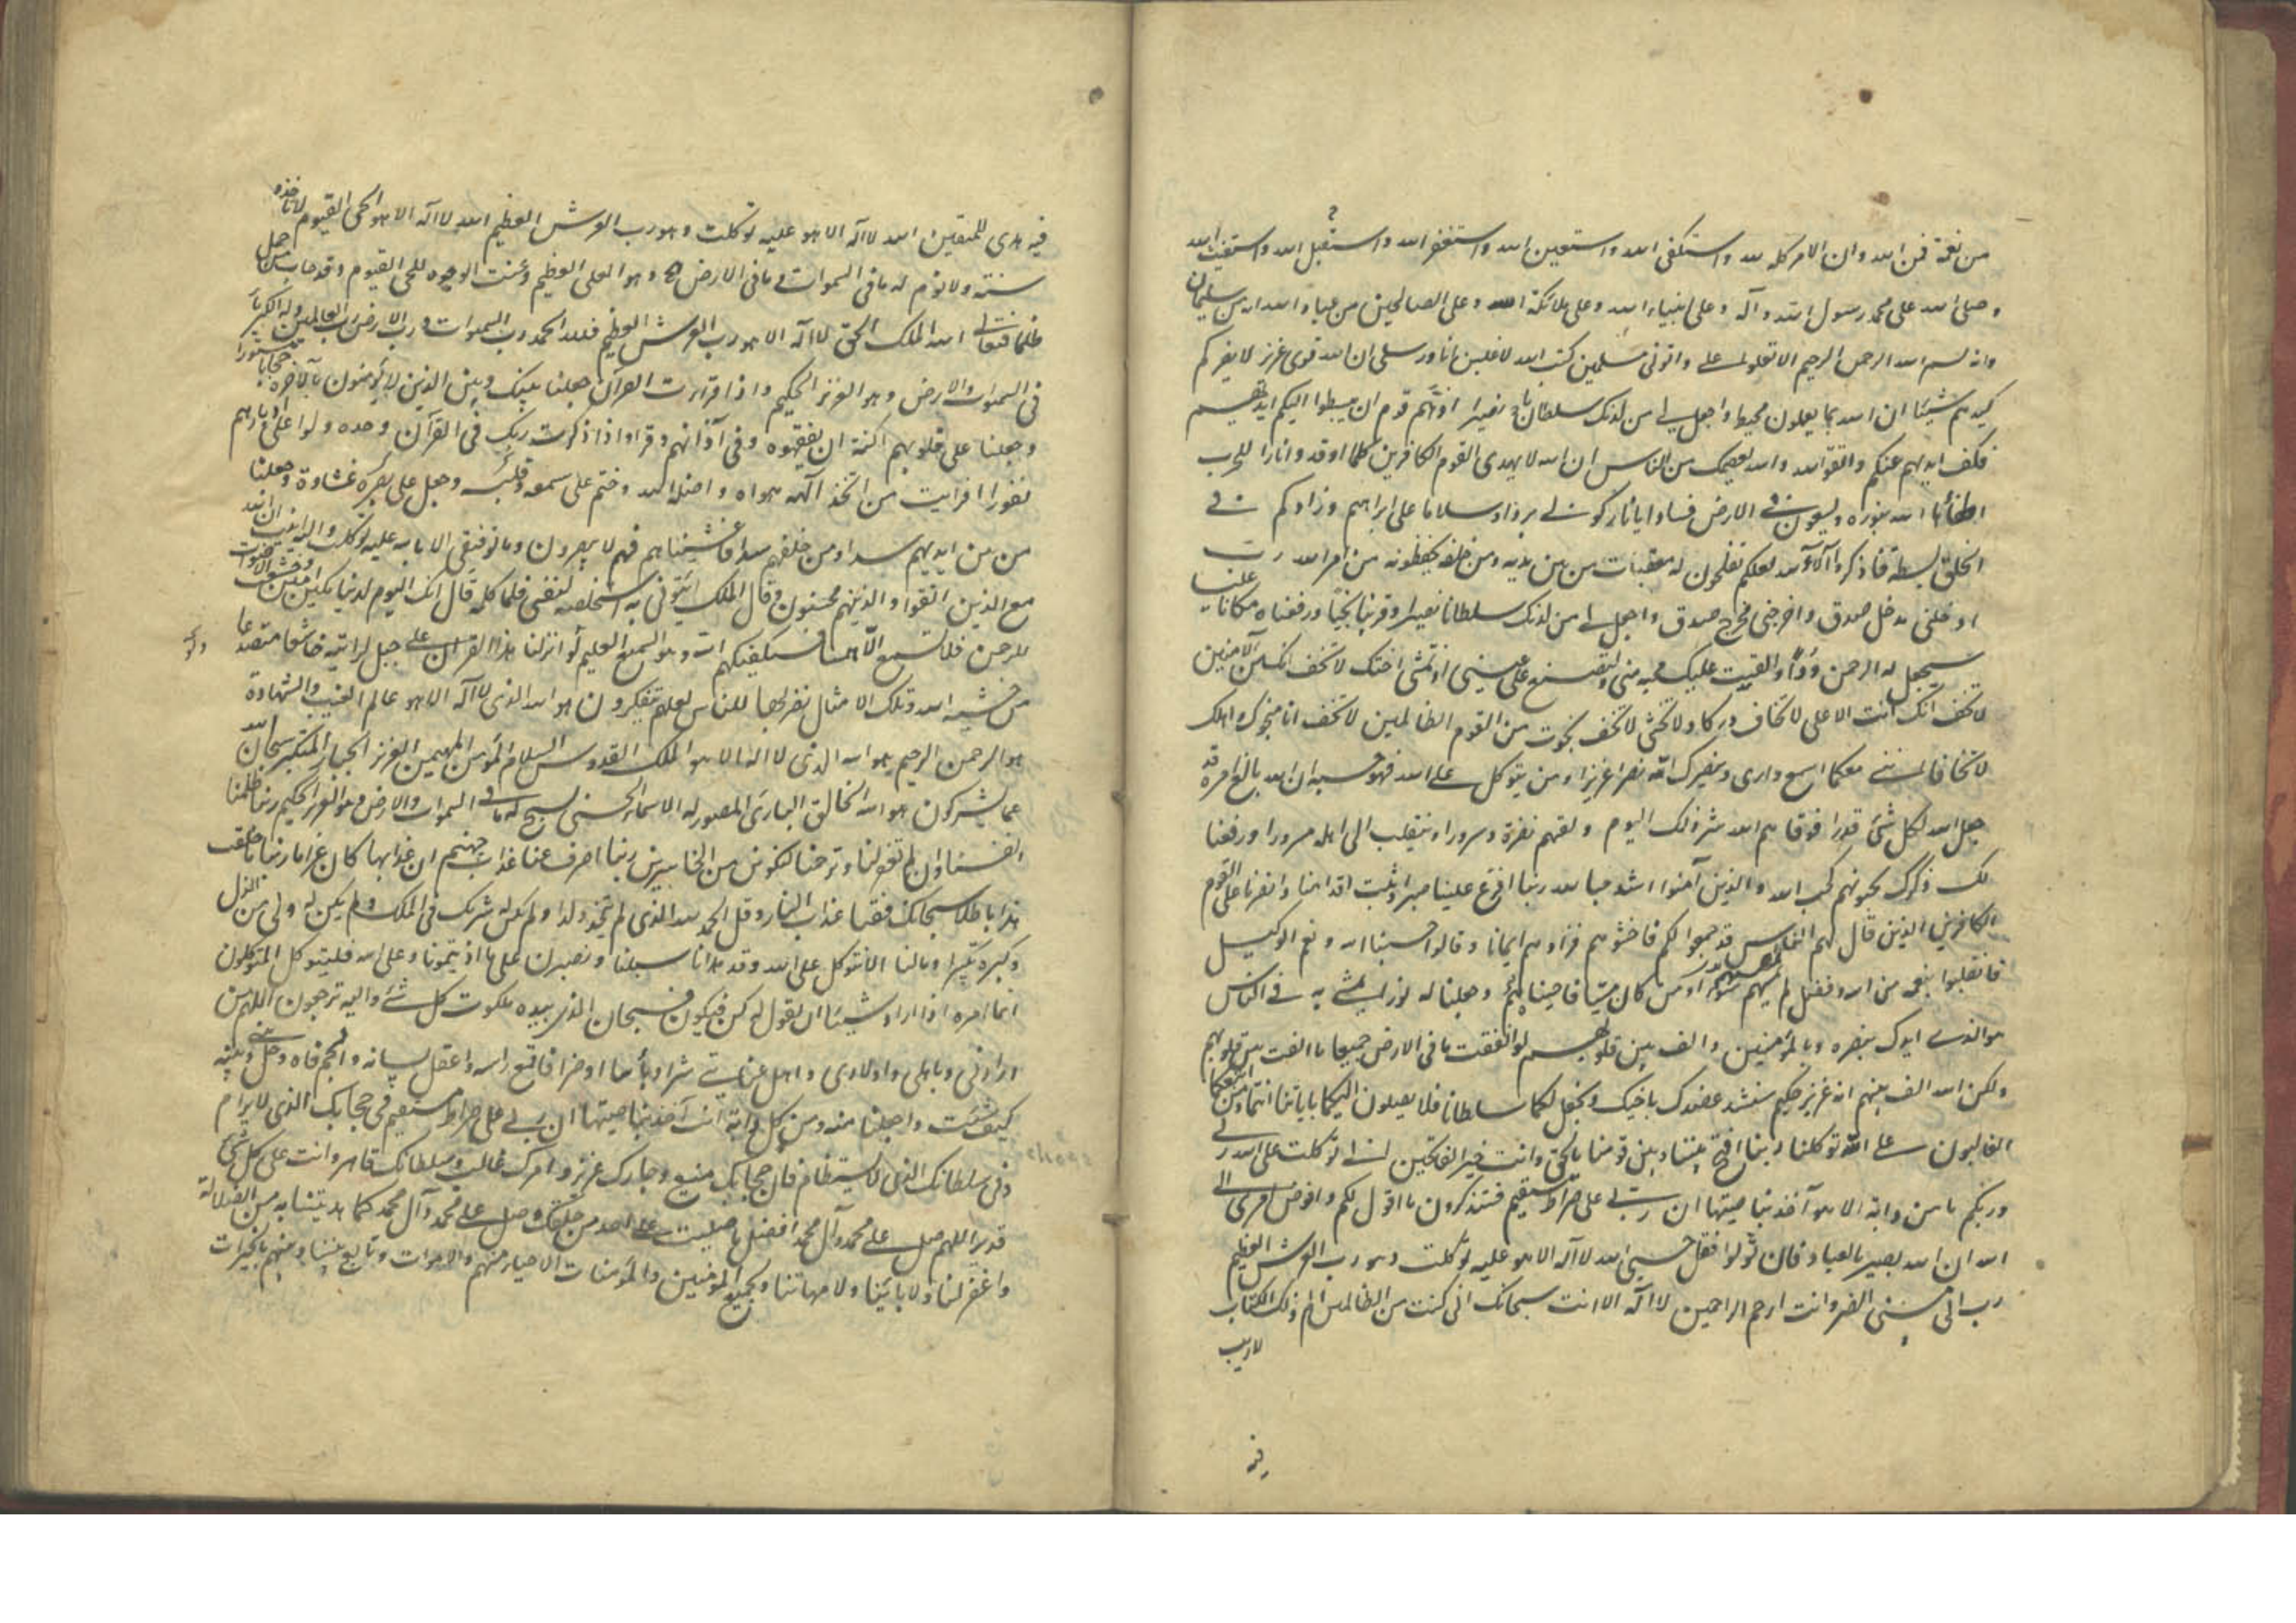 من نعمة فمن الله وان الامر كله لله واستكفى الله واستعين الله واستغفر الله واستقبل الله واستغيث الله
وصلى الله على محمد رسول الله وآله وعلى انبياء الله وعلى ملائكة الله وعلى الصالحين من عباد الله انه من سليمان
وانه بسم الله الرحمن الرحيم الا تعلوا على واتونى مسلمين كتب الله لاغلبن انا ورسلى ان الله قوى عزيز لا يضركم
كيدهم شيئا ان الله بما يعملون محيط واجعل لى من لدنك سلطانا نصيرا اذ هم قوم ان يبسطوا اليكم ايديهم
فكف ايديهم عنكم واتقوا الله والله يعصمك من الناس ان الله لا يهدى القوم الكافرين كلما اوقدوا نارا للحرب
اطفأها الله ويسعون فى الارض فسادا يا نار كونى بردا وسلاما على ابراهيم وزادكم فى
الخلق بسطة فاذكروا آلاء الله لعلكم تفلحون له معقبات من بين يديه ومن خلفه يحفظونه من امر الله رب
ادخلنى مدخل صدق واخرجنى مخرج صدق واجعل لى من لدنك سلطانا نصيرا وقربناه نجيا ورفعناه مكانا عليا
سيجعل لهم الرحمن ودا والقيت عليك محبة منى ولتصنع على عينى اذ تمشى اختك لا تخف انك من الآمنين
لا تخف انك انت الاعلى لا تخاف دركا ولا تخشى لا تخف نجوت من القوم الظالمين لا تخف انا منجوك واهلك
لا تخافا اننى معكما اسمع وارى وينصرك الله نصرا عزيزا ومن يتوكل على الله فهو حسبه ان الله بالغ امره قد
جعل الله لكل شئ قدرا فوقاهم الله شر ذلك اليوم ولقهم نضرة وسرورا وينقلب الى اهله مسرورا ورفعنا
لك ذكرك يحبونهم كحب الله والذين آمنوا اشد حبا لله ربنا افرغ علينا صبرا وثبت اقدامنا وانصرنا على القوم
الكافرين الذين قال لهم الناس ان الناس قد جمعوا لكم فاخشوهم فزادهم ايمانا وقالوا حسبنا الله ونعم الوكيل
فانقلبوا بنعمة من الله وفضل لم يمسسهم سوء او من كان ميتا فاحييناه وجعلنا له نورا يمشى به فى الناس
هو الذى ايدك بنصره وبالمؤمنين والف بين قلوبهم لو انفقت ما فى الارض جميعا ما الفت بين قلوبهم
ولكن الله الف بينهم انه عزيز حكيم سنشد عضدك باخيك ونجعل لكما سلطانا فلا يصلون اليكما باياتنا انتما ومن اتبعكما
الغالبون على الله توكلنا ربنا افتح بيننا وبين قومنا بالحق وانت خير الفاتحين انى توكلت على الله ربى
وربكم ما من دابة الا هو آخذ بناصيتها ان ربى على صراط مستقيم فستذكرون ما اقول لكم وافوض امرى الى
الله ان الله بصير بالعباد فان تولوا فقل حسبى الله لا اله الا هو عليه توكلت وهو رب العرش العظيم
رب انى مسنى الضر وانت ارحم الراحمين لا اله الا انت سبحانك انى كنت من الظالمين الم ذلك الكتاب
لا ريب
فيه هدى للمتقين الله لا اله الا هو عليه توكلت وهو رب العرش العظيم الله لا اله الا هو الحى القيوم لا تاخذه
سنة ولا نوم له ما فى السموات وما فى الارض وهو العلى العظيم وعنت الوجوه للحى القيوم وقد خاب من حمل
ظلما فتعالى الله الملك الحق لا اله الا هو رب العرش العظيم فلله الحمد رب السموات ورب الارض رب العالمين وله الكبرياء
فى السموات والارض وهو العزيز الحكيم واذا قرات القرآن جعلنا بينك وبين الذين لا يؤمنون بالآخرة حجابا مستورا
وجعلنا على قلوبهم اكنة ان يفقهوه وفى آذانهم وقرا واذا ذكرت ربك فى القرآن وحده ولوا على ادبارهم
نفورا افرايت من اتخذ الهه هواه واضله الله وختم على سمعه وقلبه وجعل على بصره غشاوة وجعلنا
من بين ايديهم سدا ومن خلفهم سدا فاغشيناهم فهم لا يبصرون وما توفيقى الا بالله عليه توكلت واليه انيب ان الله
مع الذين اتقوا والذين هم محسنون وقال الملك ائتونى به استخلصه لنفسى فلما كلمه قال انك اليوم لدينا مكين امين وخشعت الاصوات
للرحمن فلا تسمع الا همسا فسيكفيكهم الله وهو السميع العليم لو انزلنا هذا القرآن على جبل لرايته خاشعا متصدعا
من خشية الله وتلك الامثال نضربها للناس لعلهم يتفكرون هو الله الذى لا اله الا هو عالم الغيب والشهادة
هو الرحمن الرحيم هو الله الذى لا اله الا هو الملك القدوس السلام المؤمن المهيمن العزيز الجبار المتكبر سبحان الله
عما يشركون هو الله الخالق البارئ المصور له الاسماء الحسنى يسبح له ما فى السموات والارض وهو العزيز الحكيم ربنا ظلمنا
انفسنا وان لم تغفر لنا وترحمنا لنكونن من الخاسرين ربنا اصرف عنا عذاب جهنم ان عذابها كان غراما ربنا ما خلقت
هذا باطلا سبحانك فقنا عذاب النار وقل الحمد لله الذى لم يتخذ ولدا ولم يكن له شريك فى الملك ولم يكن له ولى من الذل
وكبره تكبيرا وما لنا الا نتوكل على الله وقد هدانا سبلنا ولنصبرن على ما اذيتمونا وعلى الله فليتوكل المتوكلون
انما امره اذا اراد شيئا ان يقول له كن فيكون فسبحان الذى بيده ملكوت كل شئ واليه ترجعون اللهم من
ارادنى وباهلى واولادى واهل عنايتى شرا او بأسا او ضرا فاقمع راسه واعقل لسانه والجم فاه وحل بينى وبينه
كيف شئت واجعلنا منه ومن كل دابة انت آخذ بناصيتها ان ربى على صراط مستقيم فى حجابك الذى لا يرام
وفى سلطانك الذى لا يستضام فان حجابك منيع وجارك عزيز وامرك غالب وسلطانك قاهر وانت على كل شئ
قدير اللهم صل على محمد وآل محمد افضل ما صليت على احد من خلقك وصل على محمد وآل محمد كما هديتنا به من الضلالة
واغفر لنا ولابائنا ولامهاتنا ولجميع المؤمنين والمؤمنات الاحياء منهم والاموات وتابع بيننا وبينهم بالخيرات